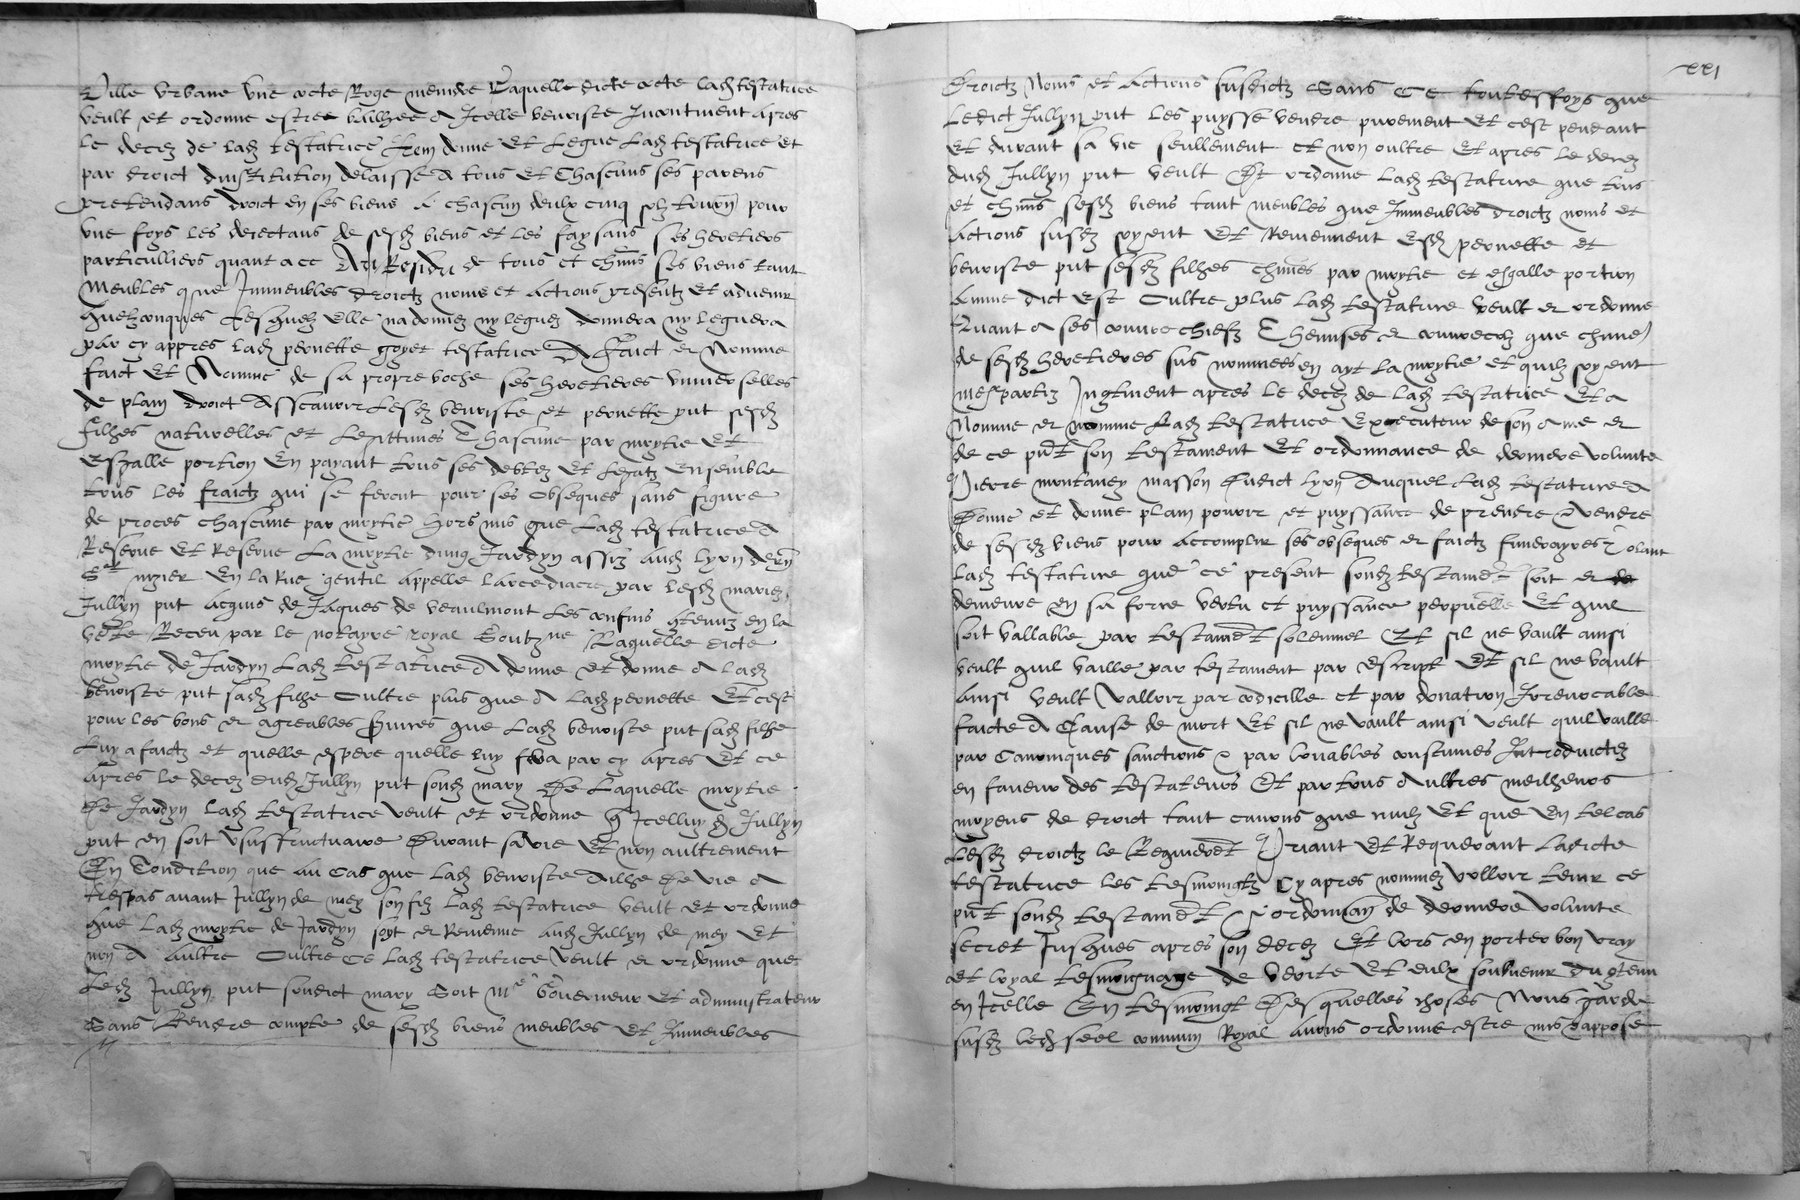 Ville urbane une cotte Roge meindre Laquelle dicte cotte lad testatrice
veult et ordonne estre bailhee a Icelle benoiste Incontinent apres
le decez de lad testatrice Item donne Et Legue Lad testatrice et
par droict dinstitution delaisse A tous Et Chascuns ses parens
pretendans droict en ses biens A chascun deulx cinq solz tourn pour
une foys les dejectans de sesd biens et les faysans ses heretiers
particulliers quant a ce Au Residu de tous et chuns ses biens tant
Meubles que Immeubles droictz noms et actions presentz Et advenir
quelzconques Desquelz elle na donnez ny leguez donnera ny leguera
par cy appres Lad pernette goyet testatrice A Faict et Nomme
faict Et Nomme de sa propre boche ses heretieres universelles
de plain droict Asscavoir Lesd benoiste et pernette put sesd
filhes naturelles et Legittimes Chascune par moytie Et
Esgalle portion En payant tous ses debtez Et Legatz Ensemble
tous les fraictz qui se feront pour ses obseques sans figure
de proces chascune par moytie hors mis que Lad testatrice A
Reserve Et Reserve La moytie dung Jardyn assiz aud Lyon dern
St nizier En la Rue gentil appelle larcediacre par lesd mariez
Jullyn put acquis de Jaques de veaulmont Les confins gtenuz en la
vente Receu par le notayre royal Laquelle dicte
moytie de Jardyn Lad testatrice A donne et donne A Lad
benoiste put sad filhe Oultre plus que A Lad pernette Et cest
pour les bons et agreables services que Lad benoiste put sad filhe
Luy a faictz et quelle espere quelle luy fera par cy apres Et ce
apres le decez dud Jullyn put sond mary De Laquelle moytie
De Jardyn Lad testatrice veult et ordonne q Icelluy d Jullyn
put en soit usuffructuaire Durant sa vie Et non aultrement
En Condition que au Cas que Lad benoiste Ailhe De vie A
trespas avant Jullyn de mey son filz Lad testatrice veult Et ordonne
que Lad moytie de Jardyn soyt et Revienne aud Jullyn de mey Et
non A Aultre Oultre ce Lad testatrice veult et ordonne que
Led Jullyn put sondict mary Soit Me Gouverneur Et administrateur
Sans Rendre compte de sesd biens meubles Et Immeubles
xxi
Droictz Noms et Actions susdictz Sans Ce toutesfoys que
Ledict Jullyn put Les puysse vendre purement Et cest pendant
Et durant sa vie seullement et non oultre Et apres le decez
dud Jullyn put veult Et ordonne Lad testatrice que tous
et chuns sesd biens tant meubles que Immeubles droictz noms et
Actions susd soyent Et Reviennent Esd pernette et
benoiste put sesd filhes chunes par moytie et esgalle portion
Comme dict Est Oultre plus Lad testatrice veult et ordonne
Quant A ses couvrechiefz Chemises et que chune
de sesd heretieres sus nommees en ayt la moytie et quilz soyent
mespartiz Ingtinent apres le decez de lad testatrice Et a
Nomme et nomme Lad testatrice Executeur de son ame et
de ce put son testament Et ordonnance de derniere volunte
Pierre montaney masson Dudict lyon Auquel Lad testatrice A
Donne et donne plain povoir et puyssance de prendre & vendre
de sesd biens pour accomplir ses obseques et faictz funerayres Volant
Lad testatrice que ce present sond testament soit et
demeure en sa force vertu et puyssance perpetuelle Et quil
soit vallable par testament solemnel Et sil ne vault ainsi
veult quil vaille par testament par escript Et sil ne vault
ainsi veult Valloir par codicille et par donation Irrevocable
faicte A Cause de mort Et sil ne vault ainsi veult quil vaille
par Canonicques sanctions & par louables coustumes Introduictes
en faveur des testateurs Et par tous Aultres meilheurs
moyens de droict tant canons que civilz Et que En tel cas
Lesd droictz le Requierent Priant Et Requerant Ladicte
testatrice les tesmoingtz Cy apres nommez volloir tenir ce
put sond testament & ordonnan de derniere volunte
secret Jusques apres son decez Et lors en porter bon vray
et loyal tesmoignage de verite Et deulx souvenir du gtenu
en Icelle En tesmoingt Desquelles choses Nous Garde
susd led seel commun Royal avons ordonne estre mis & appose